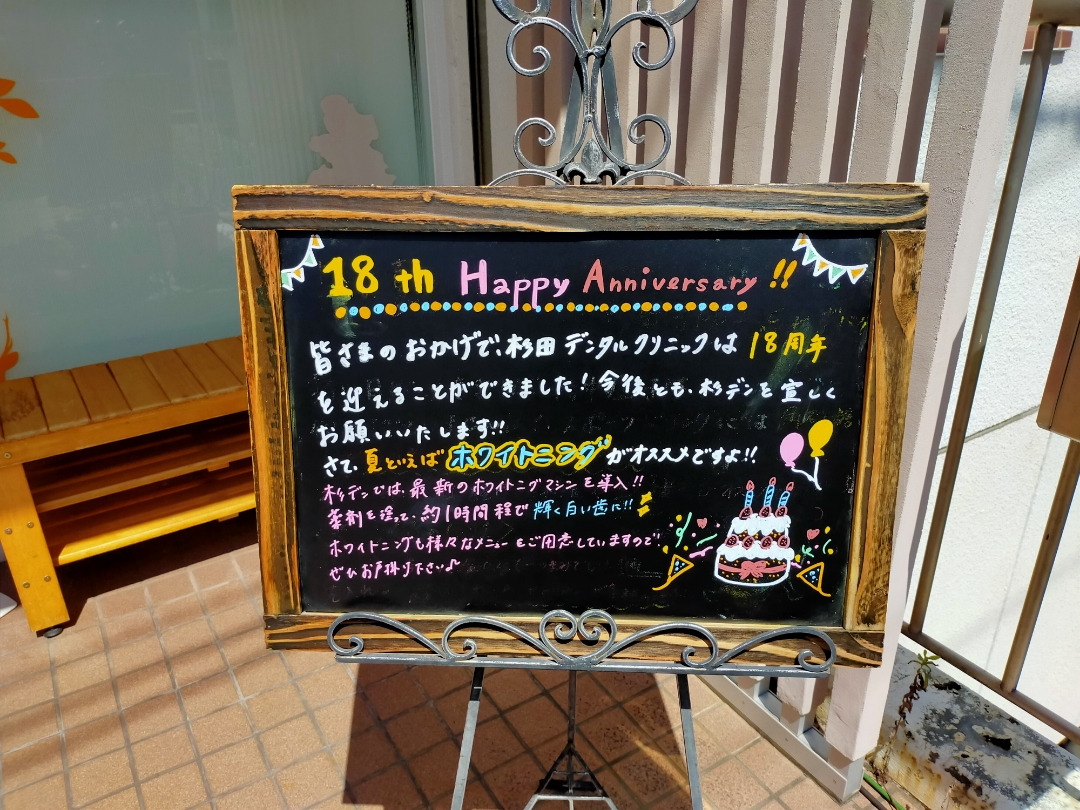 18th Happy Anniversary!!
皆さまのおかげで、杉田デンタルクリニックは18周年
を迎えることができました!今後とも、杉デンを宜しく
お願いいたします!!
さて、夏といえばホワイトニングがオススメですよ!!
杉デンでは、最新のホワイトニグマシンを導入!!
薬剤を塗って、約1時間程で輝く白い歯に!!
ホワイトニングも様々なメニューをご用意していますので、
ぜひお声掛け下さい♪